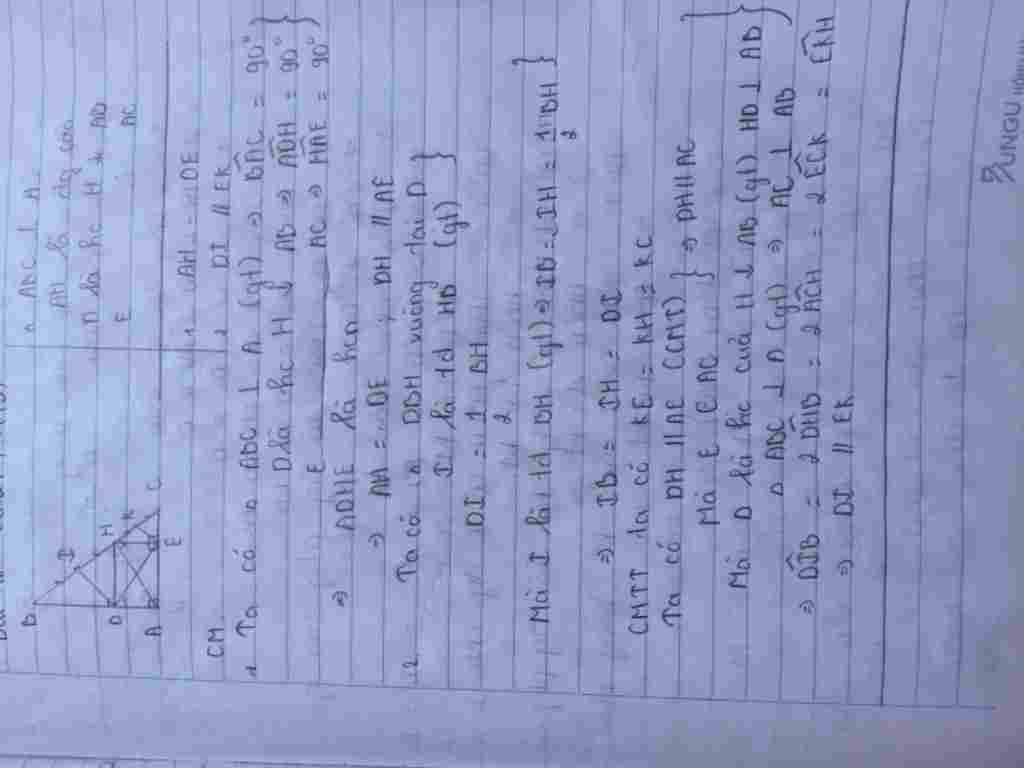 B
I
D
H
K
A
E
C
Δ ABC ⊥ A
AH là đg cao
D là hc H ⊥ AB
E AC
1 AH = DE
2 DI // EK
CM
1 Ta có Δ ABC ⊥ A (gt) ⇒ BÂC = 90°
D là hc H ⊥ AB ⇒ ADH = 90°
E AC ⇒ HAE = 90°
⇒ ADHE là hcn
⇒ AH = DE, DH // AE
2 Ta có Δ DBH vuông tại D
I là td HB (gt)
DI = 1/2 BH
Mà I là td BH (gt) ⇒ IB = IH = 1/2 BH
⇒ IB = IH = DI
CMTT ta có KE = KH = KC
Ta có DH // AE (CMT)
Mà E ∈ AC
⇒ DH // AC
Mà D là hc của H ⊥ AB (gt) HD ⊥ AB
Δ ABC ⊥ A (gt) ⇒ AC ⊥ AB
⇒ DIB = 2 DHB = 2 ACH = 2 ECK = EKH
⇒ DI // EK